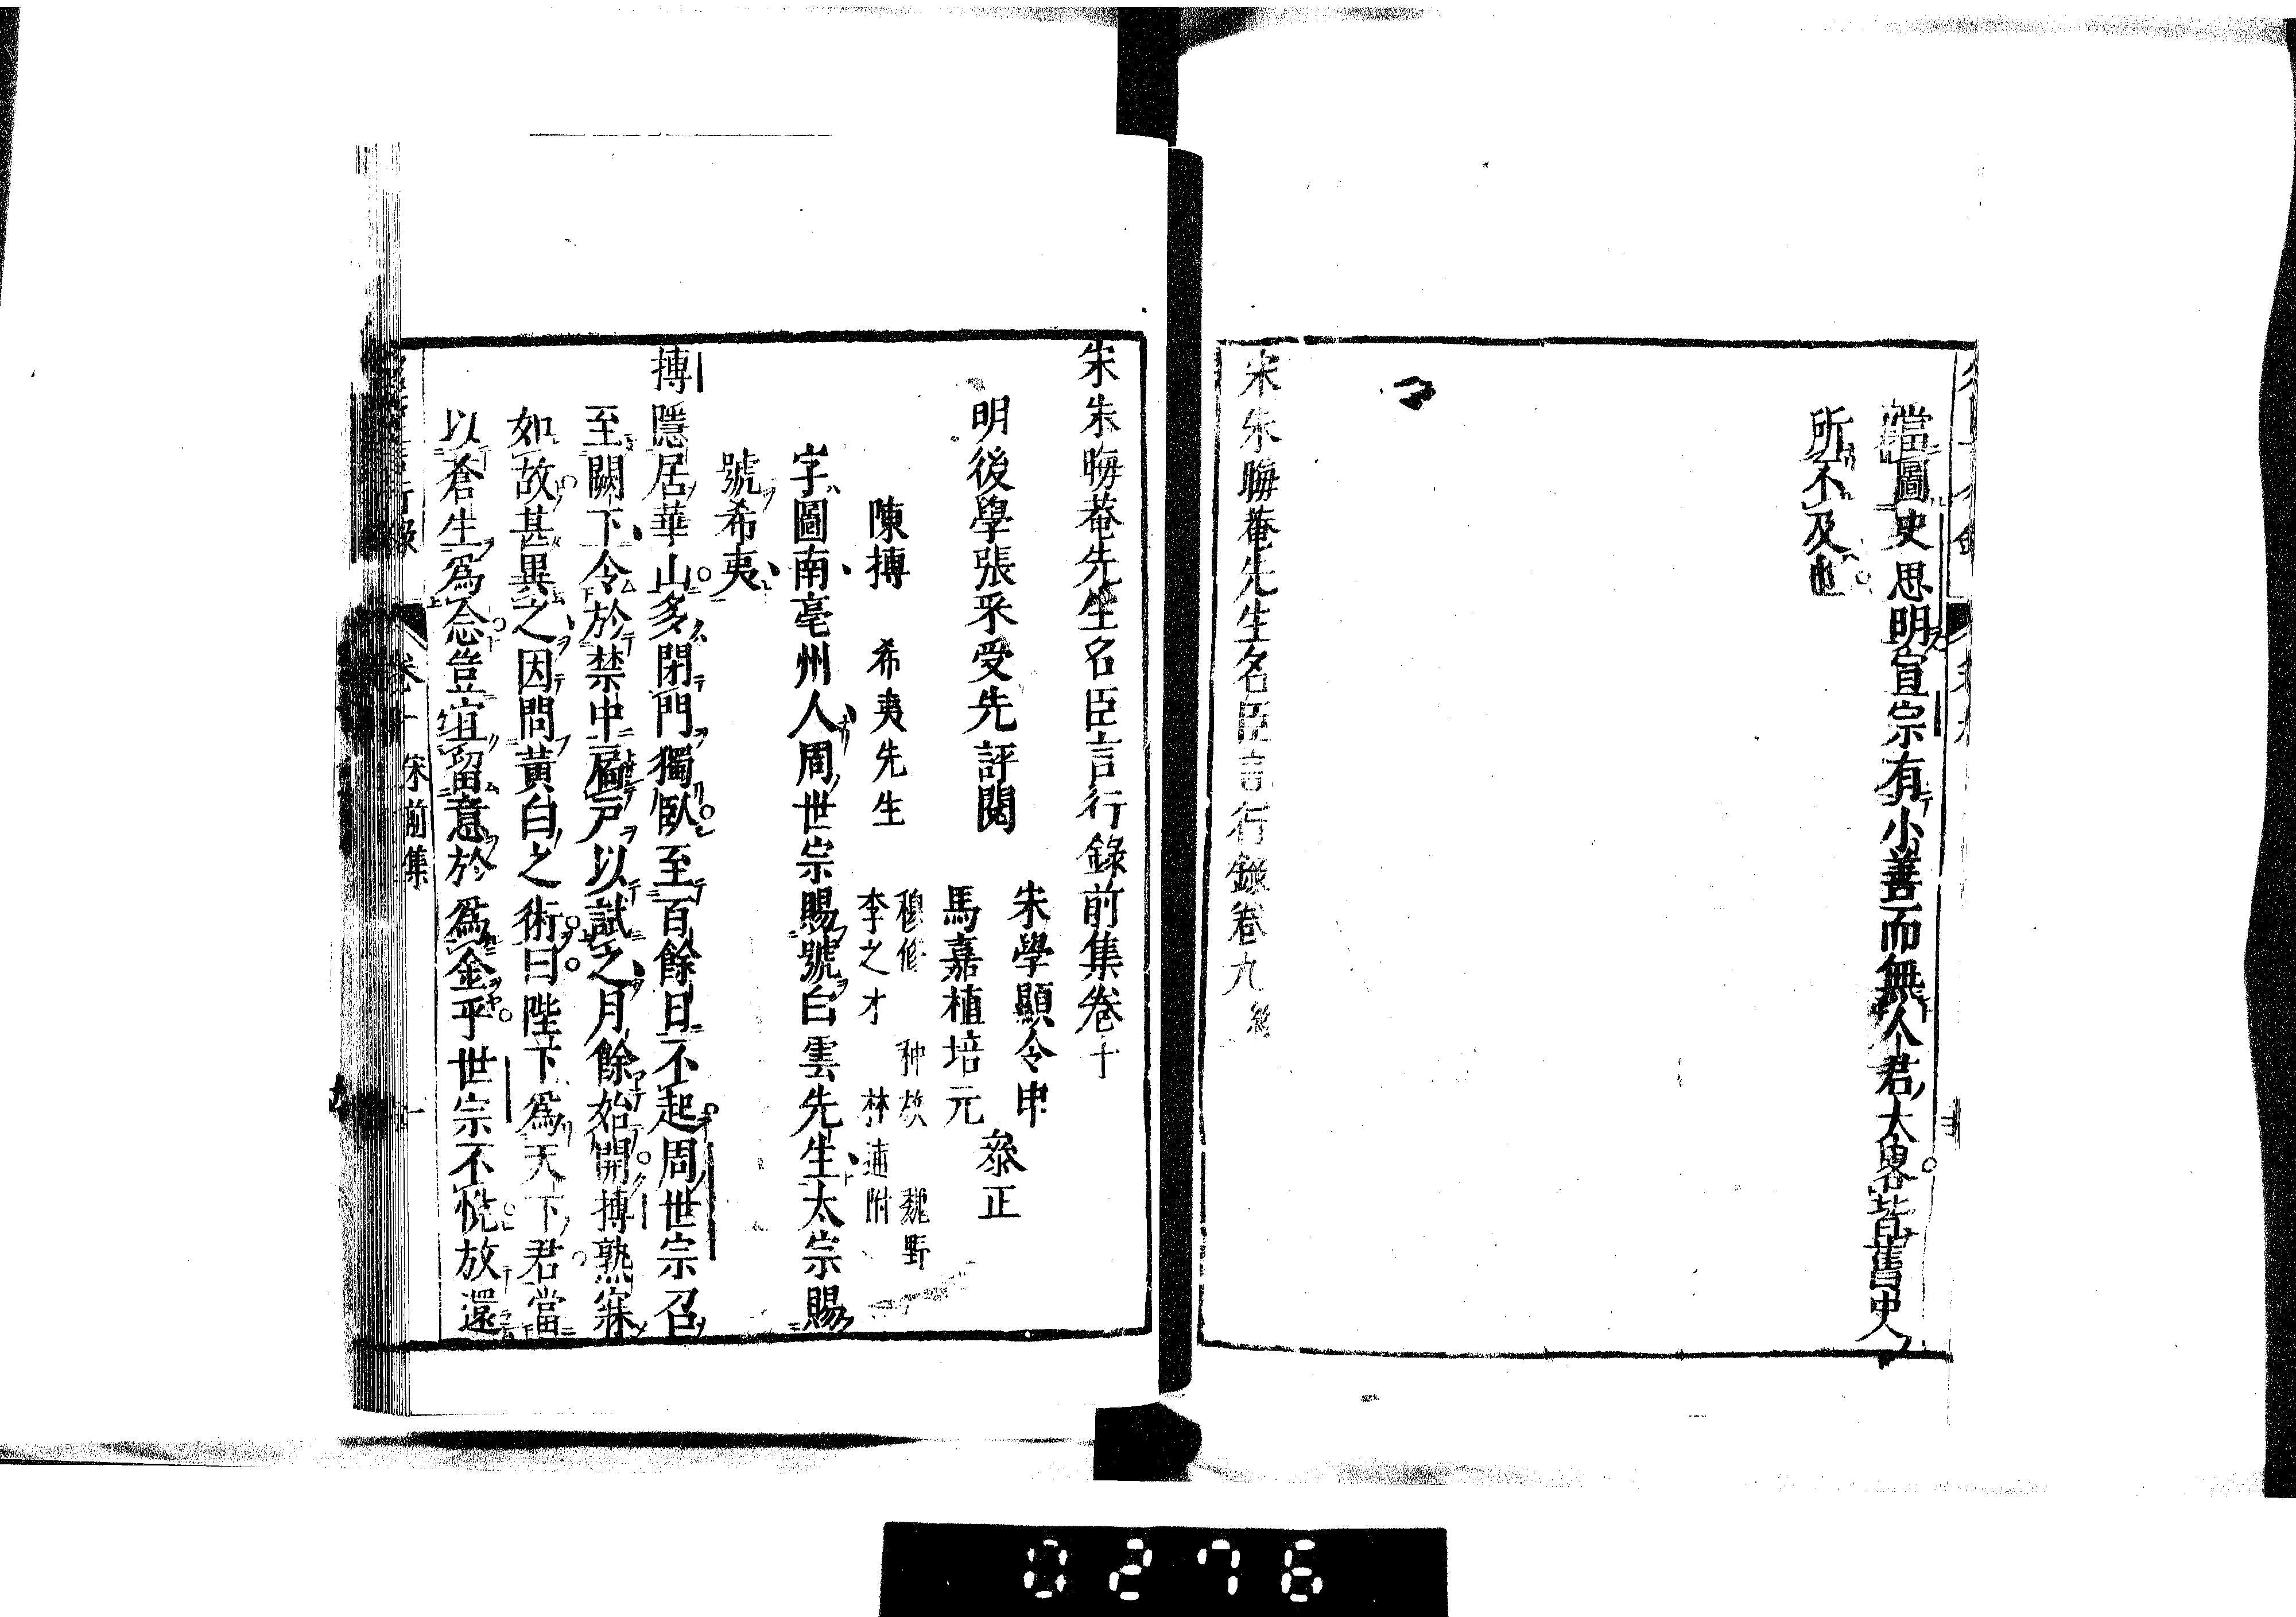 當圖史思明宣宗有小善而無人君大畧皆舊史
所不及也
宋朱晦菴先生名臣言行錄卷九終
宋朱晦菴先生名臣言行錄前集卷十
宋學顯令申
明後學張采受先評閱
馬嘉植培元
叅正
陳摶 希夷先生
穆修 种放 魏野
李之才 林逋附
字圖南亳州人周世宗賜號白雲先生太宗賜
號希夷
摶隱居華山多閉門獨臥至百餘日不起周世宗召
至闕下令於禁中扃戶以試之月餘始開摶熟寐
如故甚異之因問黃白之術曰陛下爲天下君當
以蒼生爲念豈宜留意於爲金乎世宗不悅放還
卷十 宋前集
一
0276